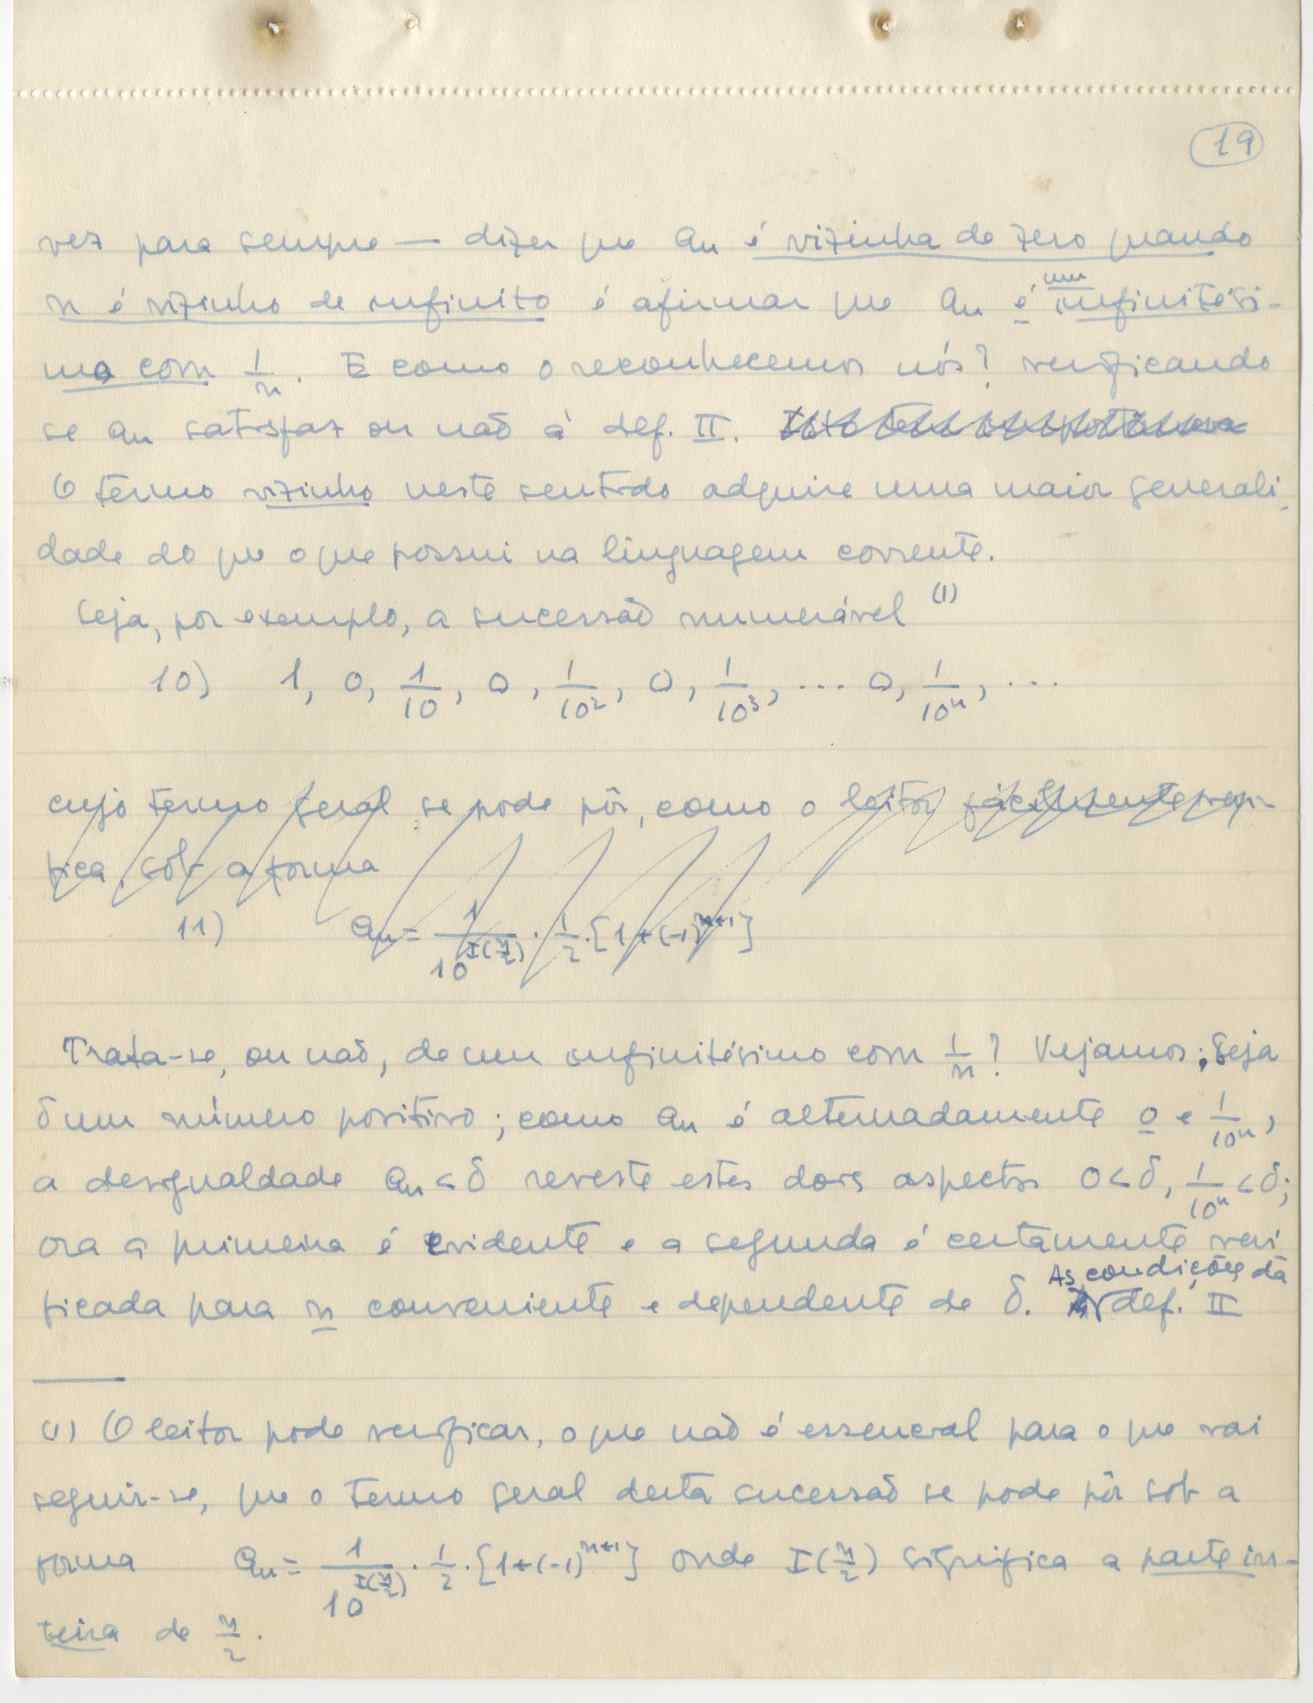 19
vez para sempre — dizer que aₙ é vizinha de zero quando
n é vizinho de infinito é afirmar que aₙ é um infinitési-
mo com 1/n. E como o reconhecemos nós? verificando
se aₙ satisfaz ou não à def. II.
O têrmo vizinho neste sentido adquire uma maior generali-
dade do que o que possui na linguagem corrente.
Seja, por exemplo, a sucessão numerável (1)
10) 1, 0, 1/10, 0, 1/10², 0, 1/10³, ... 0, 1/10ⁿ, ...
cujo termo geral se pode pôr, como o leitor facilmente veri-
fica, sob a forma
11) aₙ = 1/10^I(n/2) · 1/2 · [1+(-1)ⁿ⁺¹]
Trata-se, ou não, de um infinitésimo com 1/n? Vejamos: Seja
δ um número positivo; como aₙ é alternadamente 0 e 1/10ⁿ,
a desigualdade aₙ < δ reveste estes dois aspectos 0 < δ, 1/10ⁿ < δ;
ora a primeira é evidente e a segunda é certamente veri
ficada para n conveniente e dependente de δ. As condições da def. II
(1) O leitor pode verificar, o que não é essencial para o que vai
seguir-se, que o termo geral desta sucessão se pode pôr sob a
forma aₙ = 1/10^I(n/2) · 1/2 · [1+(-1)ⁿ⁺¹] onde I(n/2) significa a parte in-
teira de n/2.